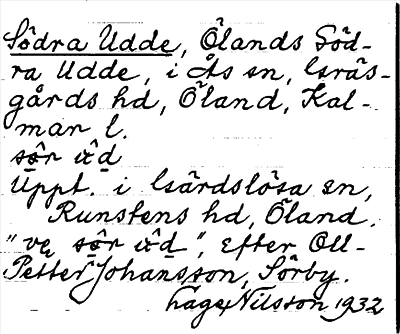 Södra Udde, Ölands Söd-
ra Udde, i Ås sn, Gräs-
gårds hd, Öland, Kal-
mar l.
sôr ud
Uppt. i Gärdslösa sn,
Runstens hd, Öland.
"ve sôr ud", efter Oll-
Petter Johansson, Sörby.
Nilsson 1932